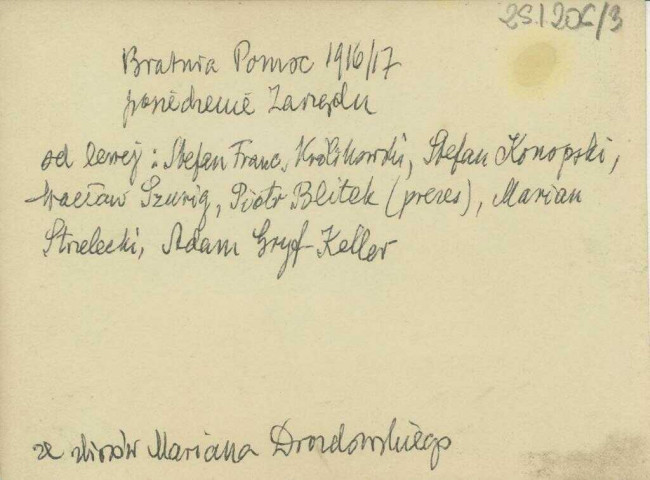 25/206/3
Bratnia Pomoc 1916/17
posiedzenie Zarządu
od lewej: Stefan Franc. Królikowski, Stefan Konopski,
Wacław Szurig, Piotr Blitek (prezes), Marian
Strzelecki, Adam Gryf-Keller
ze zbiorów Mariana Drozdowskiego